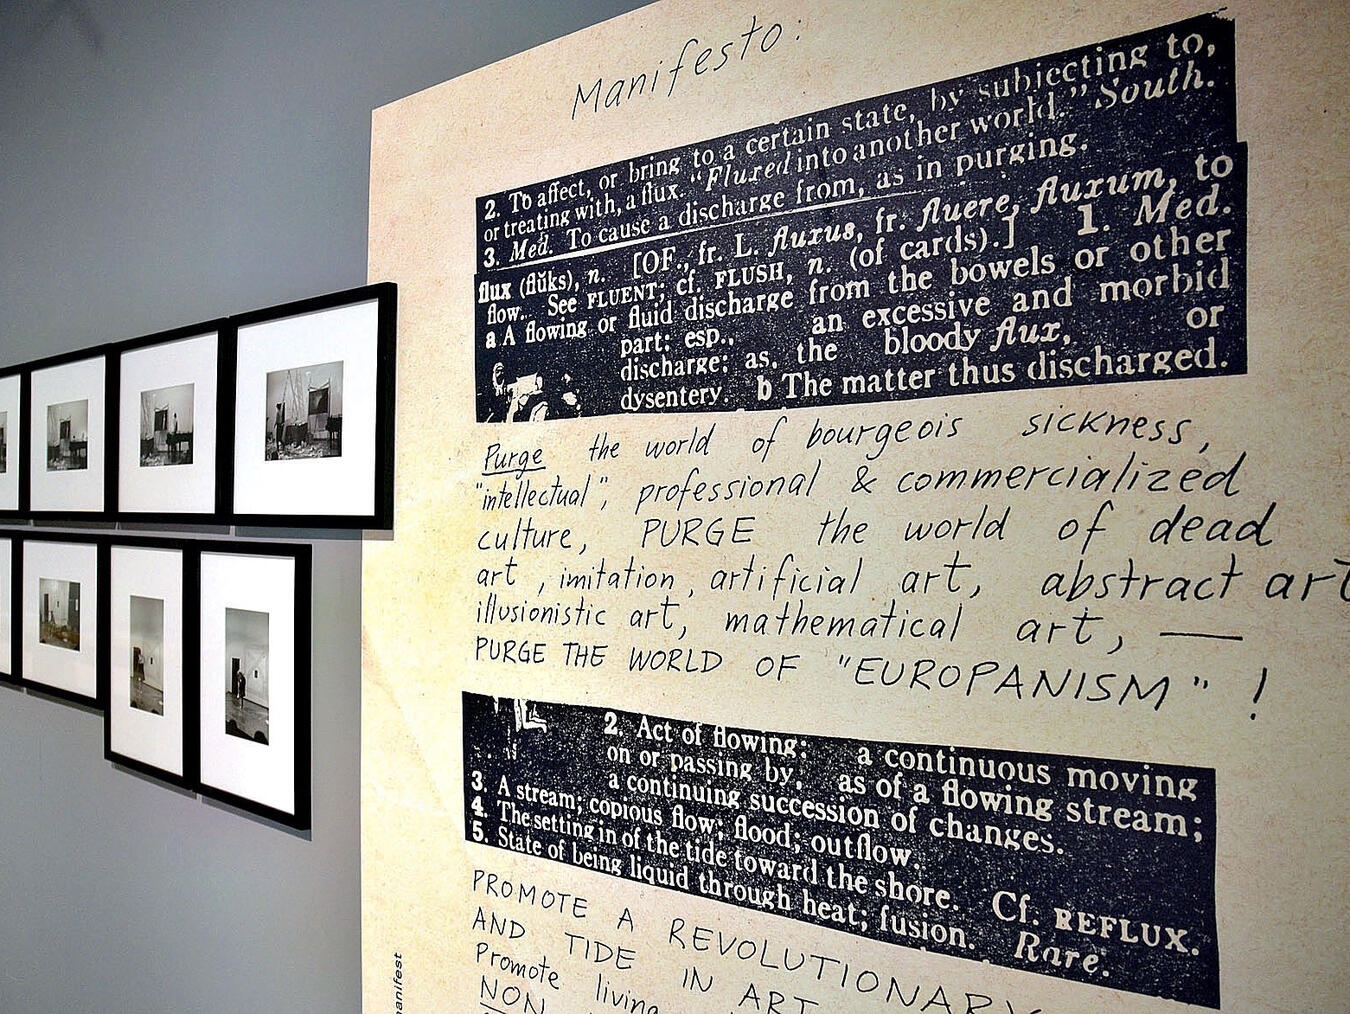 Manifesto:
2. To affect, or bring to a certain state, by subjecting to,
or treating with, a flux. "Fluxed into another world." South.
3. Med. To cause a discharge from, as in purging.
flux (flŭks), n. [OF., fr. L. fluxus, fr. fluere, fluxum, to
flow. See FLUENT; cf. FLUSH, n. (of cards).] 1. Med.
a A flowing or fluid discharge from the bowels or other
part: esp., an excessive and morbid
discharge: as, the bloody flux, or
dysentery. b The matter thus discharged.
Purge the world of bourgeois sickness,
"intellectual", professional & commercialized
culture, PURGE the world of dead
art, imitation, artificial art, abstract art
illusionistic art, mathematical art, —
PURGE THE WORLD OF "EUROPANISM"!
2. Act of flowing: a continuous moving
on or passing by, as of a flowing stream;
a continuing succession of changes.
3. A stream; copious flow; flood; outflow.
4. The setting in of the tide toward the shore. Cf. REFLUX.
5. State of being liquid through heat; fusion. Rare.
PROMOTE A REVOLUTIONARY
AND TIDE IN ART
Promote living
NON
anifest